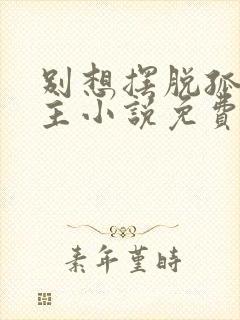 别想摆脱孤
主小说免费
素年堇时